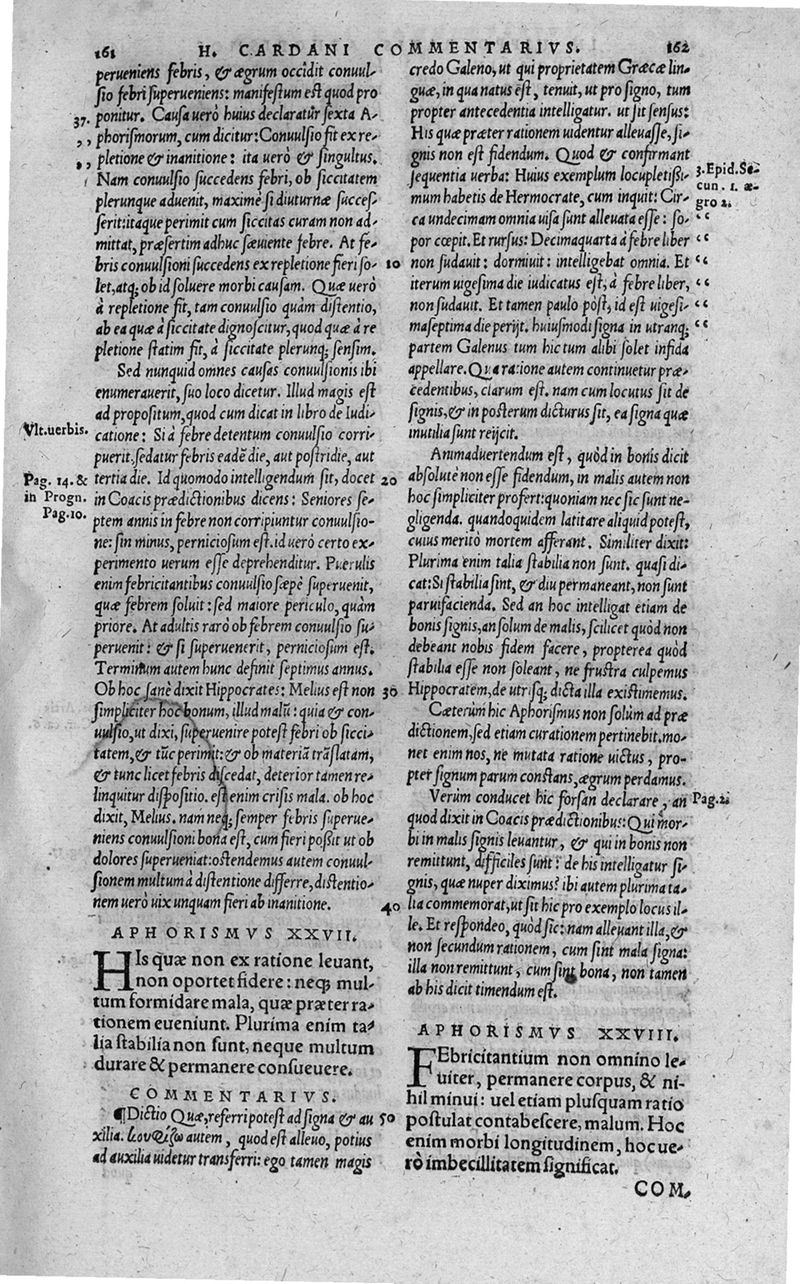 161 H. CARDANI COMMENTARIVS. 162
perueniens febris, & ægrum occidit conuul-
sio febri superueniens: manifestum est quod pro
ponitur. Causa uerò huius declaratur sexta A-
37.
phorismorum, cum dicitur: Conuulsio fit ex re-
,,
pletione & inanitione: ita uerò & singultus.
,,
Nam conuulsio succedens febri, ob siccitatem
plerunque aduenit, maximè si diuturnæ succes-
serit: itaque perimit cum siccitas curam non ad-
mittat, præsertim adhuc sæuiente febre. At fe-
bris conuulsioni succedens ex repletione fieri so-
let, atq; ob id soluere morbi causam. Quæ uerò
à repletione fit, tam conuulsio quàm distentio,
ab ea quæ à siccitate dignoscitur, quod quæ à re
pletione statim fit, à siccitate plerunq; sensim.
Sed nunquid omnes causas conuulsionis ibi
enumerauerit, suo loco dicetur. Illud magis est
ad propositum, quod cum dicat in libro de Iudi-
Vlt. uerbis.
catione: Si à febre detentum conuulsio corri-
puerit. sedatur febris eadē die, aut postridie, aut
Pag. 14. &
in Progn.
Pag. 10.
tertia die. Id quomodo intelligendum sit, docet
in Coacis prædictionibus dicens: Seniores se-
ptem annis in febre non corripiuntur conuulsio-
ne: sin minus, perniciosum est. id uerò certo ex-
perimento uerum esse deprehenditur. Puerulis
enim febricitantibus conuulsio sæpè superuenit,
quæ febrem soluit: sed maiore periculo, quàm
priore. At adultis rarò ob febrem conuulsio su-
peruenit: & si superuenerit, perniciosum est.
Terminum autem hunc definit septimus annus.
Ob hoc sanè dixit Hippocrates: Melius est non
simpliciter hoc bonum, illud malū: quia & con-
uulsio, ut dixi, superuenire potest febri ob sicci-
tatem, & tūc perimit: & ob materiā trāslatam,
& tunc licet febris discedat, deterior tamen re-
linquitur dispositio. est enim crisis mala. ob hoc
dixit, Melius. nam neq; semper febris superue-
niens conuulsioni bona est, cum fieri possit ut ob
dolores superueniat: ostendemus autem conuul-
sionem multum à distentione differre, distentio-
nem uerò uix unquam fieri ab inanitione.
APHORISMVS XXVII.
HIs quæ non ex ratione leuant,
non oportet fidere: neq; mul-
tum formidare mala, quæ præter ra-
tionem eueniunt. Plurima enim ta-
lia stabilia non sunt, neque multum
durare & permanere consueuere.
COMMENTARIVS.
¶Dictio Quæ, referri potest ad signa & au
xilia. κουφίζω autem, quod est alleuo, potius
ad auxilia uidetur transferri: ego tamen magis
10
20
30
40
50
credo Galeno, ut qui proprietatem Græcæ lin-
guæ, in qua natus est, tenuit, ut pro signo, tum
propter antecedentia intelligatur. ut sit sensus:
His quæ præter rationem uidentur alleuasse, si-
gnis non est fidendum. Quod & confirmant
sequentia uerba: Huius exemplum locupletissi-
3. Epid. Se-
cun. 1. æ-
gro 2.
mum habetis de Hermocrate, cum inquit: Cir-
ca undecimam omnia uisa sunt alleuata esse: so-
“
por cœpit. Et rursus: Decimaquarta à febre liber
“
non sudauit: dormiuit: intelligebat omnia. Et
“
iterum uigesima die iudicatus est, à febre liber,
“
non sudauit. Et tamen paulo pòst, id est uigesi-
“
maseptima die perijt. huiusmodi signa in utranq;
“
partem Galenus tum hic tum alibi solet infida
appellare. Qua ratione autem continuetur præ-
cedentibus, clarum est. nam cum locutus sit de
signis, & in posterum dicturus sit, ea signa quæ
inutilia sunt reijcit.
Animaduertendum est, quòd in bonis dicit
absolutè non esse fidendum, in malis autem non
hoc simpliciter profert: quoniam nec sic sunt ne-
gligenda. quandoquidem latitare aliquid potest,
cuius meritò mortem afferant. Similiter dixit:
Plurima enim talia stabilia non sunt. quasi di-
cat: Si stabilia sint, & diu permaneant, non sunt
paruifacienda. Sed an hoc intelligat etiam de
bonis signis, an solum de malis, scilicet quòd non
debeant nobis fidem facere, propterea quòd
stabilia esse non soleant, ne frustra culpemus
Hippocratem, de utrisq; dicta illa existimemus.
Cæterùm hic Aphorismus non solùm ad præ
dictionem, sed etiam curationem pertinebit. mo-
net enim nos, ne mutata ratione uictus, pro-
pter signum parum constans, ægrum perdamus.
Verùm conducet hic forsan declarare, an
Pag. 2.
quod dixit in Coacis prædictionibus: Qui mor-
bi in malis signis leuantur, & qui in bonis non
remittunt, difficiles sunt: de his intelligatur si-
gnis, quæ nuper diximus? ibi autem plurima ta-
lia commemorat, ut sit hic pro exemplo locus il-
le. Et respondeo, quòd sic: nam alleuant illa, &
non secundum rationem, cum sint mala signa:
illa non remittunt, cum sint bona, non tamen
ab his dicit timendum est.
APHORISMVS XXVIII.
FEbricitantium non omnino le-
uiter, permanere corpus, & ni-
hil minui: uel etiam plusquam ratio
postulat contabescere, malum. Hoc
enim morbi longitudinem, hoc ue-
rò imbecillitatem significat.
COM-